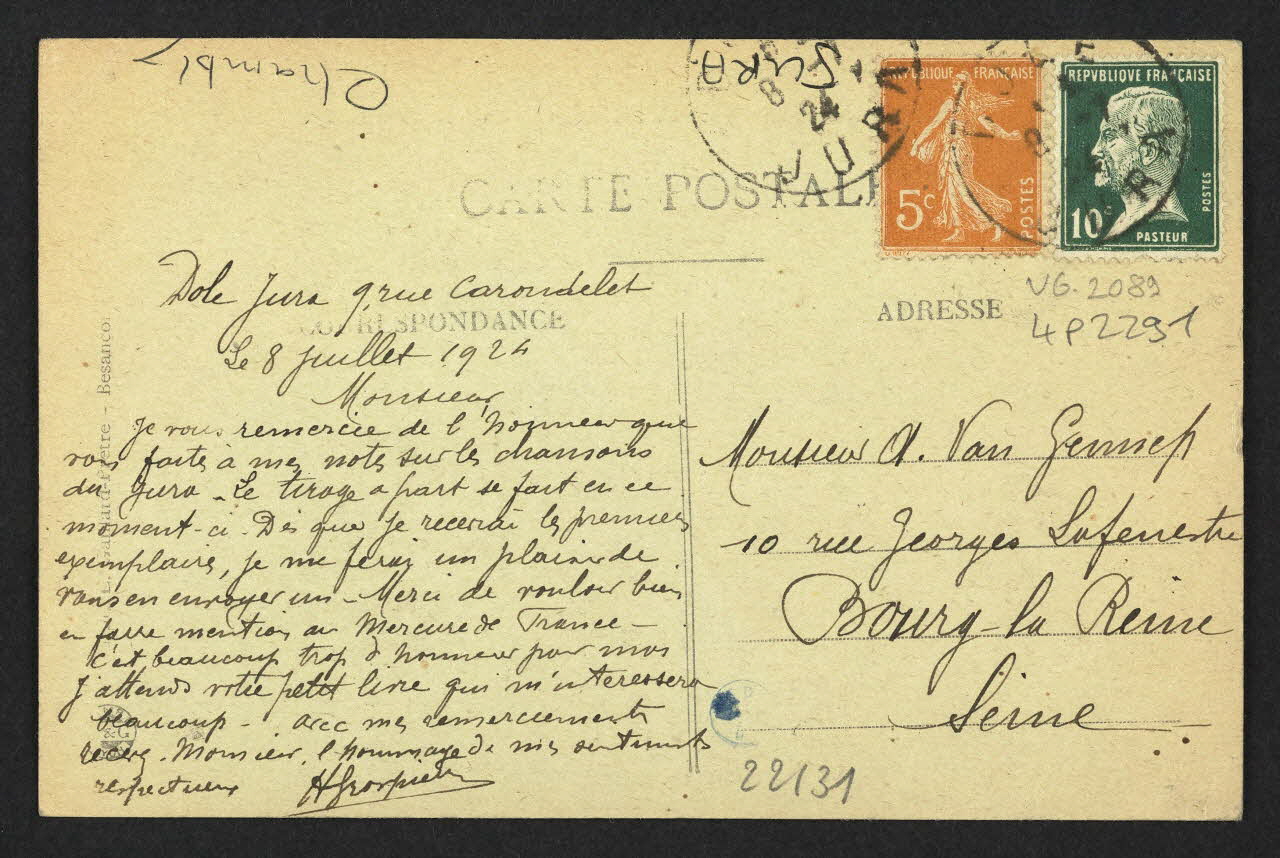 Chambly
JURA
8
24
JURA
REPUBLIQUE FRANÇAISE
5c
POSTES
REPVBLIQVE FRANÇAISE
10c
POSTES
PASTEUR
CARTE POSTALE
CORRESPONDANCE
ADRESSE
VG. 2089
4P2291
Dole Jura 9 rue Carondelet
Le 8 Juillet 1924
Monsieur,
Je vous remercie de l'honneur que
vous faites à mes notes sur les chansons
du Jura - Le tirage a part se fait en ce
moment-ci. Dès que je recevrai les premiers
exemplaires, je me ferai un plaisir de
vous en envoyer un - Merci de vouloir bien
en faire mention au Mercure de France -
c'est beaucoup trop d'honneur pour moi
J'attends votre petit livre qui m'interessera
beaucoup - avec mes remerciements
recevez, Monsieur, l'hommage de mes sentiments
respectueux HGrospierre
Monsieur A. Van Gennep
10 rue Georges Lafenestre
Bourg-la Reine
Seine
22/31
- Besançon